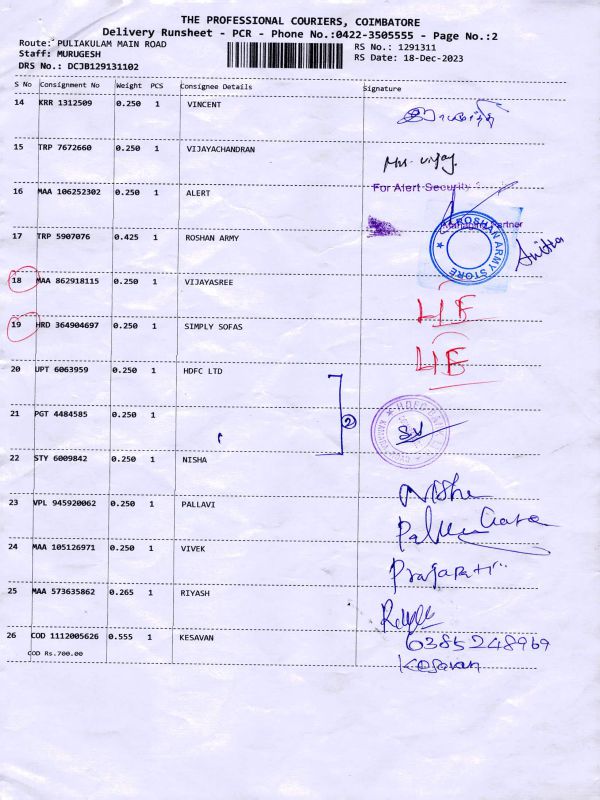 THE PROFESSIONAL COURIERS, COIMBATORE
Delivery Runsheet - PCR - Phone No.:0422-3505555 - Page No.:2
Route: PULIAKULAM MAIN ROAD
RS No.: 1291311
Staff: MURUGESH
RS Date: 18-Dec-2023
DRS No.: DCJB129131102
S No Consignment No Weight PCS Consignee Details Signature
14 KRR 1312509 0.250 1 VINCENT
15 TRP 7672660 0.250 1 VIJAYACHANDRAN
Mrs. Vijay.
16 MAA 106252302 0.250 1 ALERT
For Alert Security
Partner
17 TRP 5907076 0.425 1 ROSHAN ARMY
ROSHAN ARMY STORE
Anitha
18 MAA 862918115 0.250 1 VIJAYASREE
19 HRD 364904697 0.250 1 SIMPLY SOFAS
20 UPT 6063959 0.250 1 HDFC LTD
2
HDFC
21 PGT 4484585 0.250 1
22 STY 6009842 0.250 1 NISHA
Nisha
23 VPL 945920062 0.250 1 PALLAVI
24 MAA 105126971 0.250 1 VIVEK
Prajapati
25 MAA 573635862 0.265 1 RIYASH
26 COD 1112005626 0.555 1 KESAVAN
6385248969
COD Rs.700.00
Kesavan